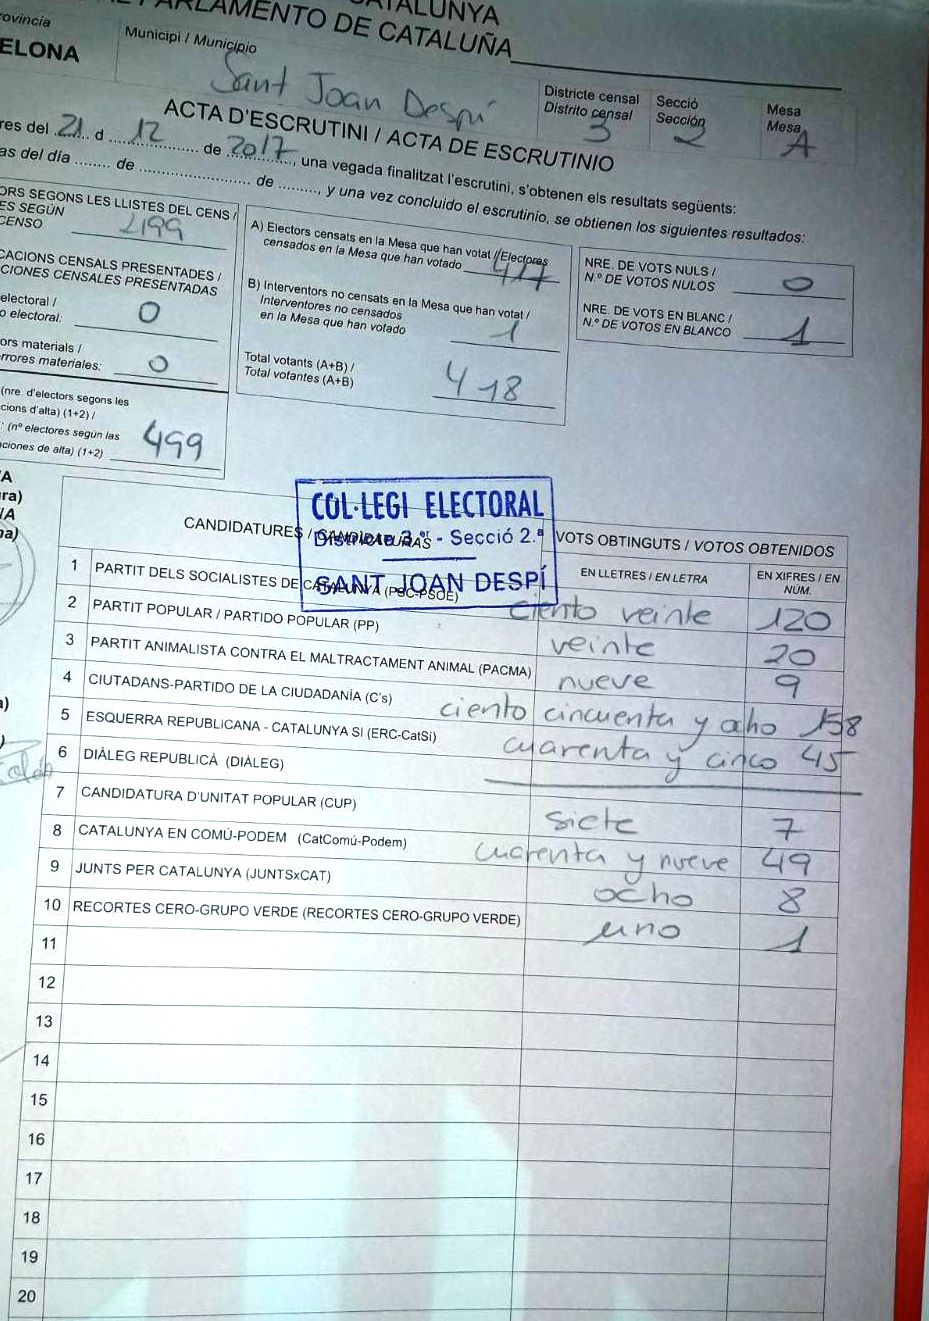 CATALUNYA
PARLAMENTO DE CATALUÑA
rovincia
ELONA
Municipi / Municipio
Sant Joan Despí
Districte censal
Distrito censal
3
Secció
Sección
2
Mesa
Mesa
A
ACTA D'ESCRUTINI / ACTA DE ESCRUTINIO
res del 21 d 12 de 2017, una vegada finalitzat l'escrutini, s'obtenen els resultats següents:
as del día ........ de ........................ de ........, y una vez concluido el escrutinio, se obtienen los siguientes resultados:
ORS SEGONS LES LLISTES DEL CENS /
ES SEGÚN
CENSO 499
CACIONS CENSALS PRESENTADES /
CIONES CENSALES PRESENTADAS
electoral /
o electoral: 0
ors materials /
rrores materiales: 0
(nre. d'electors segons les
cions d'alta) (1+2) /
: (nº electores según las
aciones de alta) (1+2) 499
A) Electors censats en la Mesa que han votat / Electores
censados en la Mesa que han votado 417
B) Interventors no censats en la Mesa que han votat /
Interventores no censados
en la Mesa que han votado 1
Total votants (A+B) /
Total votantes (A+B) 418
NRE. DE VOTS NULS /
N.º DE VOTOS NULOS 0
NRE. DE VOTS EN BLANC /
N.º DE VOTOS EN BLANCO 1
COL·LEGI ELECTORAL
Districte 3.er - Secció 2.ª
SANT JOAN DESPÍ
CANDIDATURES / CANDIDATURAS
VOTS OBTINGUTS / VOTOS OBTENIDOS
EN LLETRES / EN LETRA
EN XIFRES / EN
NÚM.
1 PARTIT DELS SOCIALISTES DE CATALUNYA (PSC-PSOE) ciento veinte 120
2 PARTIT POPULAR / PARTIDO POPULAR (PP) veinte 20
3 PARTIT ANIMALISTA CONTRA EL MALTRACTAMENT ANIMAL (PACMA) nueve 9
4 CIUTADANS-PARTIDO DE LA CIUDADANÍA (C's) ciento cincuenta y ocho 158
5 ESQUERRA REPUBLICANA - CATALUNYA SÍ (ERC-CatSí) cuarenta y cinco 45
6 DIÀLEG REPUBLICÀ (DIÀLEG)
7 CANDIDATURA D'UNITAT POPULAR (CUP) siete 7
8 CATALUNYA EN COMÚ-PODEM (CatComú-Podem) cuarenta y nueve 49
9 JUNTS PER CATALUNYA (JUNTSxCAT) ocho 8
10 RECORTES CERO-GRUPO VERDE (RECORTES CERO-GRUPO VERDE) uno 1
11
12
13
14
15
16
17
18
19
20